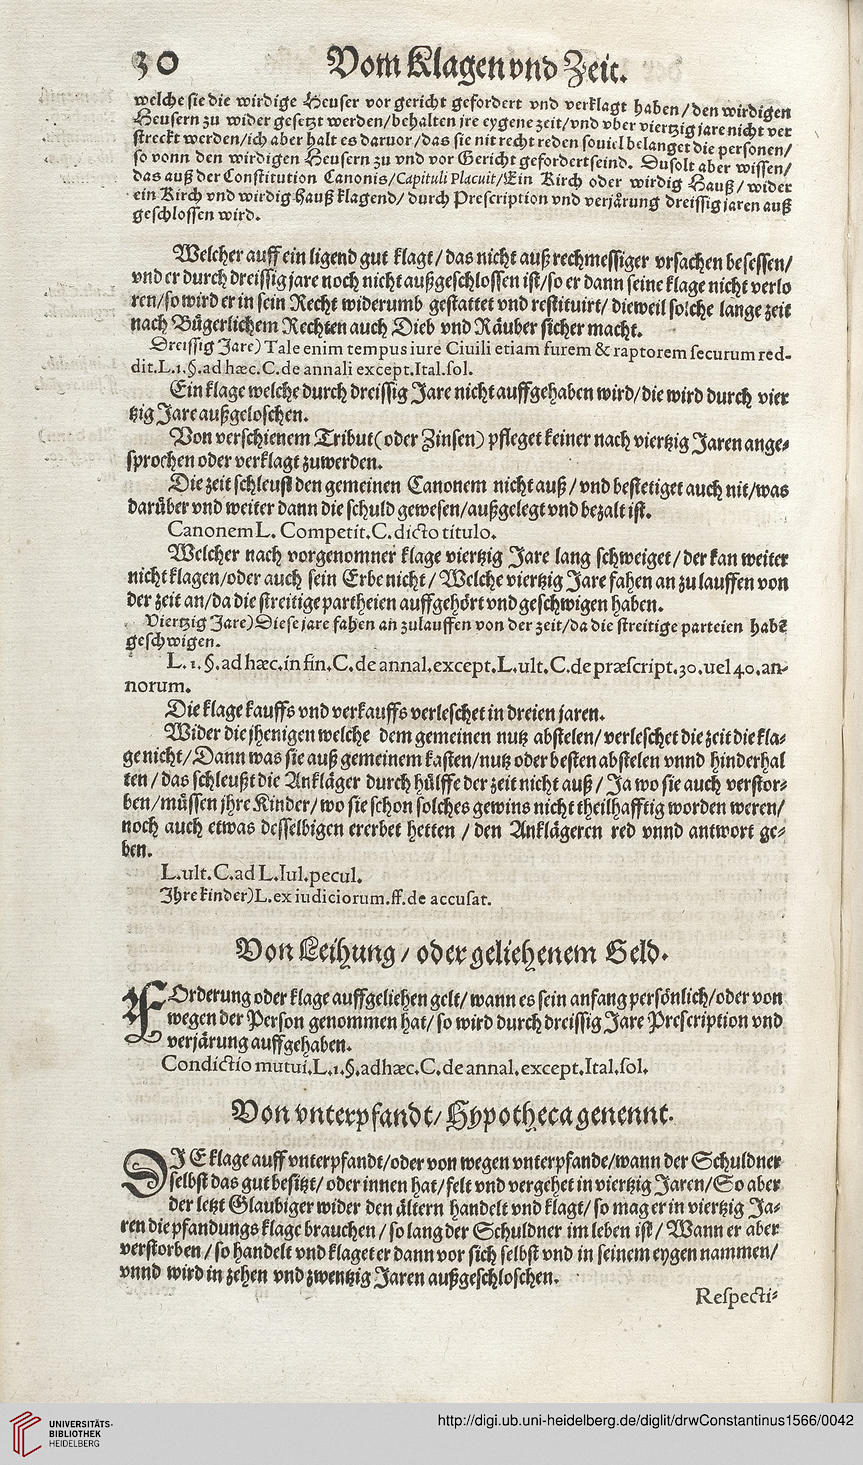 30 Vom Klagen vnd Zeit.
welche sie die wirdige Heuser vor gericht gefordert vnd verklagt haben / den wirdigen
Heusern zu wider gesetzt werden / behalten jre eygene zeit / vnd vber viertzig jare nicht ver
streckt werden / ich aber halt es daruor / das sie nit recht reden souiel belanget die personen /
so vonn den wirdigen Heusern zu vnd vor Gericht gefordert seind. Du solt aber wissen /
das auß der Constitution Canonis / Capituli Placuit / Ein Kirch oder wirdig Hauß / wider
ein Kirch vnd wirdig Hauß klagend / durch Prescription vnd verjärung dreissig jaren auß
geschlossen wird.
Welcher auff ein ligend gut klagt / das nicht auß rechmessiger vrsachen besessen /
vnd er durch dreissig jare noch nicht außgeschlossen ist / so er dann seine klage nicht verlo
ren / so wird er in sein Recht widerumb gestattet vnd restituirt / dieweil solche lange zeit
nach Bügerlichem Rechten auch Dieb vnd Räuber sicher macht.
Dreissig Jare) Tale enim tempus iure Ciuili etiam furem & raptorem securum red-
dit. L. 1. §. ad hæc. C. de annali except. Ital. sol.
Ein klage welche durch dreissig Jare nicht auffgehaben wird / die wird durch vier
tzig Jare außgeloschen.
Von verschienem Tribut (oder Zinsen) pfleget keiner nach viertzig Jaren ange-
sprochen oder verklagt zuwerden.
Die zeit schleust den gemeinen Canonem nicht auß / vnd bestetiget auch nit / was
darüber vnd weiter dann die schuld gewesen / außgelegt vnd bezalt ist.
Canonem L. Competit. C. dicto titulo.
Welcher nach vorgenomner klage viertzig Jare lang schweiget / der kan weiter
nicht klagen / oder auch sein Erbe nicht / Welche viertzig Jare fahen an zu lauffen von
der zeit an / da die streitige partheien auffgehört vnd geschwigen haben.
Viertzig Jare) Diese jare fahen an zulauffen von der zeit / da die streitige parteien habē
geschwigen.
L. 1. §. ad hæc. in fin. C. de annal. except. L. ult. C. de præscript. 30. uel 40. an-
norum.
Die klage kauffs vnd verkauffs verleschet in dreien jaren.
Wider die jhenigen welche dem gemeinen nutz abstelen / verleschet die zeit die kla-
ge nicht / Dann was sie auß gemeinem kasten / nutz oder besten abstelen vnnd hinderhal
ten / das schleußt die Ankläger durch hülffe der zeit nicht auß / Ja wo sie auch verstor-
ben / müssen jhre Kinder / wo sie schon solches gewins nicht theilhafftig worden weren /
noch auch etwas desselbigen ererbet hetten / den Anklägeren red vnnd antwort ge-
ben.
L. ult. C. ad L. Iul. pecul.
Jhre kinder) L. ex iudiciorum. ff. de accusat.
Von Leihung / oder geliehenem Geld.
FOrderung oder klage auffgeliehen gelt / wann es sein anfang persönlich / oder von
wegen der Person genommen hat / so wird durch dreissig Jare Prescription vnd
verjärung auffgehaben.
Condictio mutui. L. 1. §. ad hæc. C. de annal. except. Ital. sol.
Von vnterpfandt / Hypotheca genennt.
DIE klage auff vnterpfandt / oder von wegen vnterpfande / wann der Schuldner
selbst das gut besitzt / oder innen hat / felt vnd vergehet in viertzig Jaren / So aber
der letzt Glaubiger wider den ältern handelt vnd klagt / so mag er in viertzig Ja-
ren die pfandungs klage brauchen / so lang der Schuldner im leben ist / Wann er aber
verstorben / so handelt vnd klaget er dann vor sich selbst vnd in seinem eygen nammen /
vnnd wird in zehen vnd zwentzig Jaren außgeschloschen.
Respecti-
UNIVERSITÄTS-
BIBLIOTHEK
HEIDELBERG
http://digi.ub.uni-heidelberg.de/diglit/drwConstantinus1566/0042